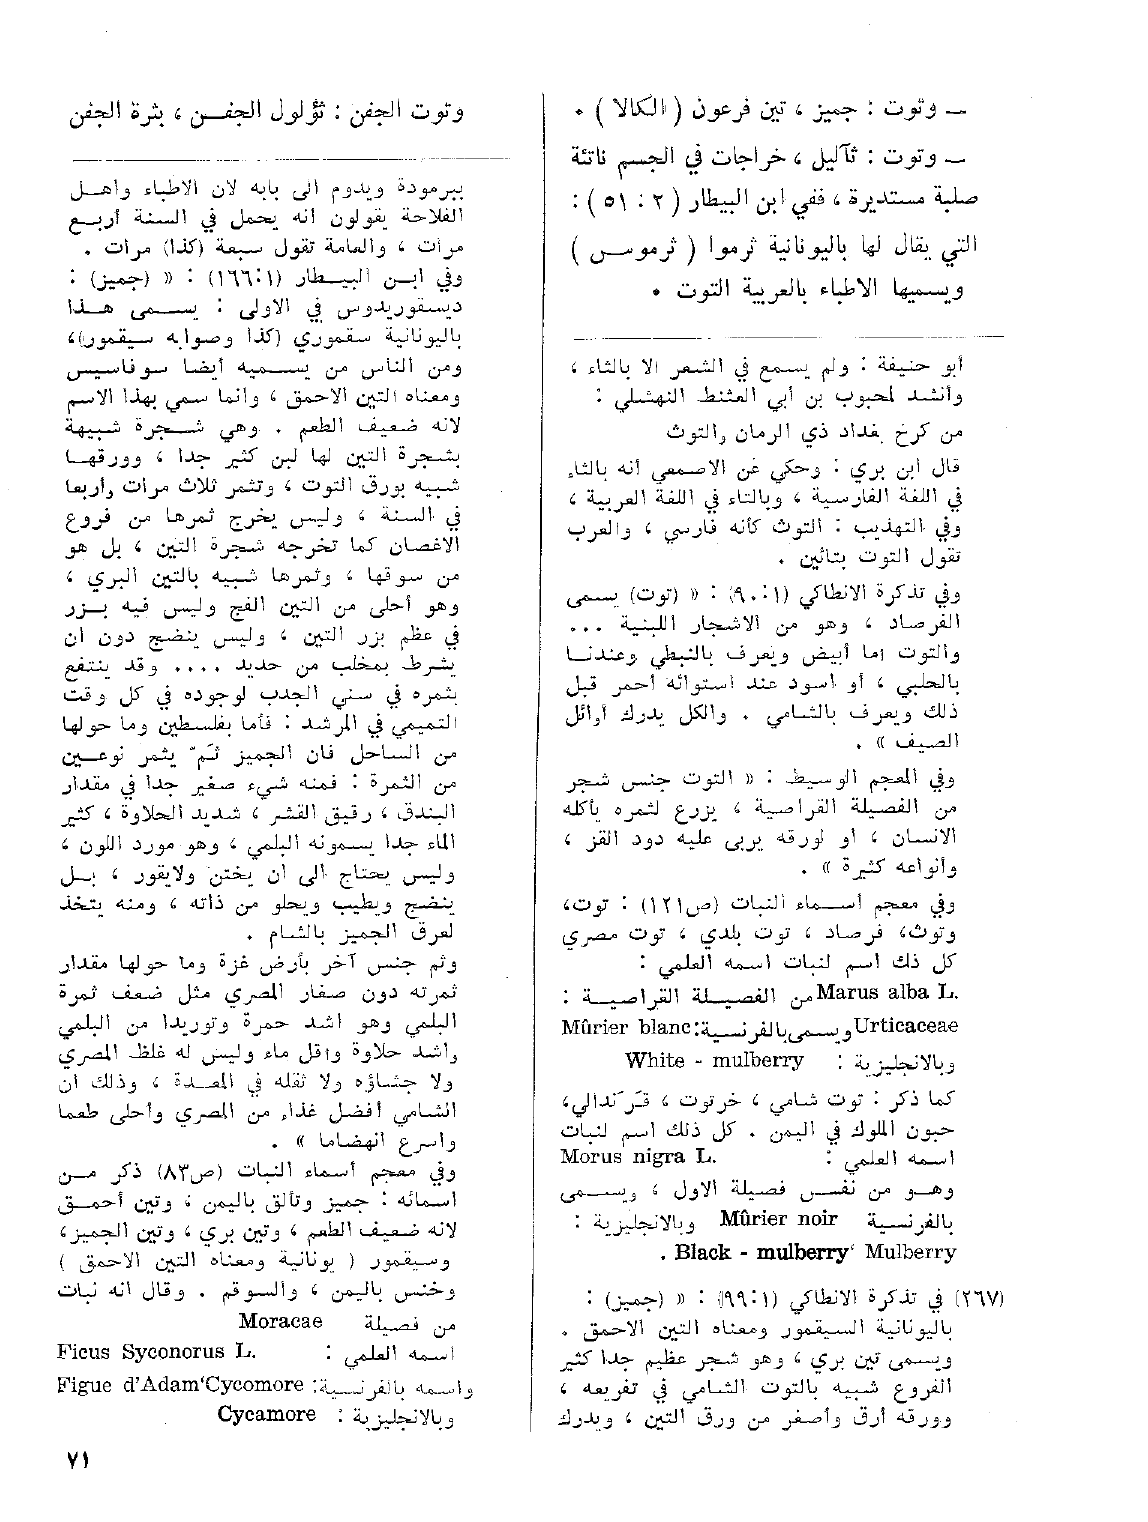 — وتوت : جميز ، تين فرعون ( الكالا ) .
— وتوت : ثآليل ، خراجات في الجسم ناتئة
صلبة مستديرة ، ففي ابن البيطار ( ٢ : ٥١ ) :
التي يقال لها باليونانية ثرموا ( ثرموس )
ويسميها الاطباء بالعربية التوت .
أبو حنيفة : ولم يسمع في الشعر الا بالثاء ،
وأنشد لمحبوب بن أبي العشنط النهشلي :
من كرخ بغداد ذي الرمان والتوث
قال ابن بري : وحكي عن الاصمعي أنه بالثاء
في اللغة الفارسية ، وبالتاء في اللغة العربية ،
وفي التهذيب : التوث كأنه فارسي ، والعرب
تقول التوت بتائين .
وفي تذكرة الانطاكي (١:٩٠) : « (توت) يسمى
الفرصاد ، وهو من الاشجار اللبنية ...
والتوت اما أبيض ويعرف بالنبطي وعندنا
بالحلبي ، أو اسود عند استوائه أحمر قبل
ذلك ويعرف بالشامي . والكل يدرك أوائل
الصيف » .
وفي المعجم الوسيط : « التوت جنس شجر
من الفصيلة القراصية ، يزرع لثمره يأكله
الانسان ، او لورقه يربى عليه دود القز ،
وأنواعه كثيرة » .
وفي معجم أسماء النبات (ص١٢١) : توت،
وتوث، فرصاد ، توت بلدي ، توت مصري
كل ذلك اسم لنبات اسمه العلمي :
Marus alba L. من الفصيلة القراصية :
Urticaceae ويسمى بالفرنسية: Mûrier blanc
وبالانجليزية : White - mulberry
كما ذكر : توت شامي ، خرتوت ، قرندالي،
حبون الملوك في اليمن . كل ذلك اسم لنبات
اسمه العلمي : Morus nigra L.
وهو من نفس فصيلة الاول ، ويسمى
بالفرنسية Mûrier noir وبالانجليزية :
Black - mulberry‘ Mulberry .
(٢٦٧) في تذكرة الانطاكي (١:٩٩) : « (جميز) :
باليونانية السيقمور ومعناه التين الاحمق .
ويسمى تين بري ، وهو شجر عظيم جدا كثير
الفروع شبيه بالتوت الشامي في تفريعه ،
وورقه أرق وأصفر من ورق التين ، ويدرك
وتوت الجفن : ثؤلول الجفن ، بثرة الجفن
ببرمودة ويدوم الى بابه لان الاطباء واهل
الفلاحة يقولون انه يحمل في السنة أربع
مرات ، والعامة تقول سبعة (كذا) مرات .
وفي ابن البيطار (١:١٦٦) : « (جميز) :
ديسقوريدوس في الاولى : يسمى هذا
باليونانية سقموري (كذا وصوابه سيقمور)،
ومن الناس من يسميه أيضا سوفاسيس
ومعناه التين الاحمق ، وانما سمي بهذا الاسم
لانه ضعيف الطعم . وهي شجرة شبيهة
بشجرة التين لها لبن كثير جدا ، وورقها
شبيه بورق التوت ، وتثمر ثلاث مرات وأربعا
في السنة ، وليس يخرج ثمرها من فروع
الاغصان كما تخرجه شجرة التين ، بل هو
من سوقها ، وثمرها شبيه بالتين البري ،
وهو أحلى من التين الفج وليس فيه بزر
في عظم بزر التين ، وليس ينضج دون ان
يشرط بمخلب من حديد .... وقد ينتفع
بثمره في سني الجدب لوجوده في كل وقت
التميمي في المرشد : فأما بفلسطين وما حولها
من الساحل فان الجميز ثمّ يثمر نوعين
من الثمرة : فمنه شيء صغير جدا في مقدار
البندق ، رقيق القشر ، شديد الحلاوة ، كثير
الماء جدا يسمونه البلمي ، وهو مورد اللون ،
وليس يحتاج الى ان يختن ولايقور ، بل
ينضج ويطيب ويحلو من ذاته ، ومنه يتخذ
لعرق الجميز بالشام .
وثم جنس آخر بأرض غزة وما حولها مقدار
ثمرته دون صغار المصري مثل ضعف ثمرة
البلمي وهو اشد حمرة وتوريدا من البلمي
وأشد حلاوة واقل ماء وليس له غلظ المصري
ولا جشاؤه ولا ثقله في المعدة ، وذلك ان
الشامي أفضل غذاء من المصري وأحلى طعما
واسرع انهضاما » .
وفي معجم أسماء النبات (ص٨٣) ذكر من
اسمائه : جميز وتألق باليمن ، وتين أحمق
لانه ضعيف الطعم ، وتين بري ، وتين الجميز،
وسيقمور ( يونانية ومعناه التين الاحمق )
وخنس باليمن ، والسوقم . وقال انه نبات
من فصيلة Moracae
اسمه العلمي : Ficus Syconorus L.
واسمه بالفرنسية: Figue d'Adam‘Cycomore
وبالانجليزية : Cycamore
٧١